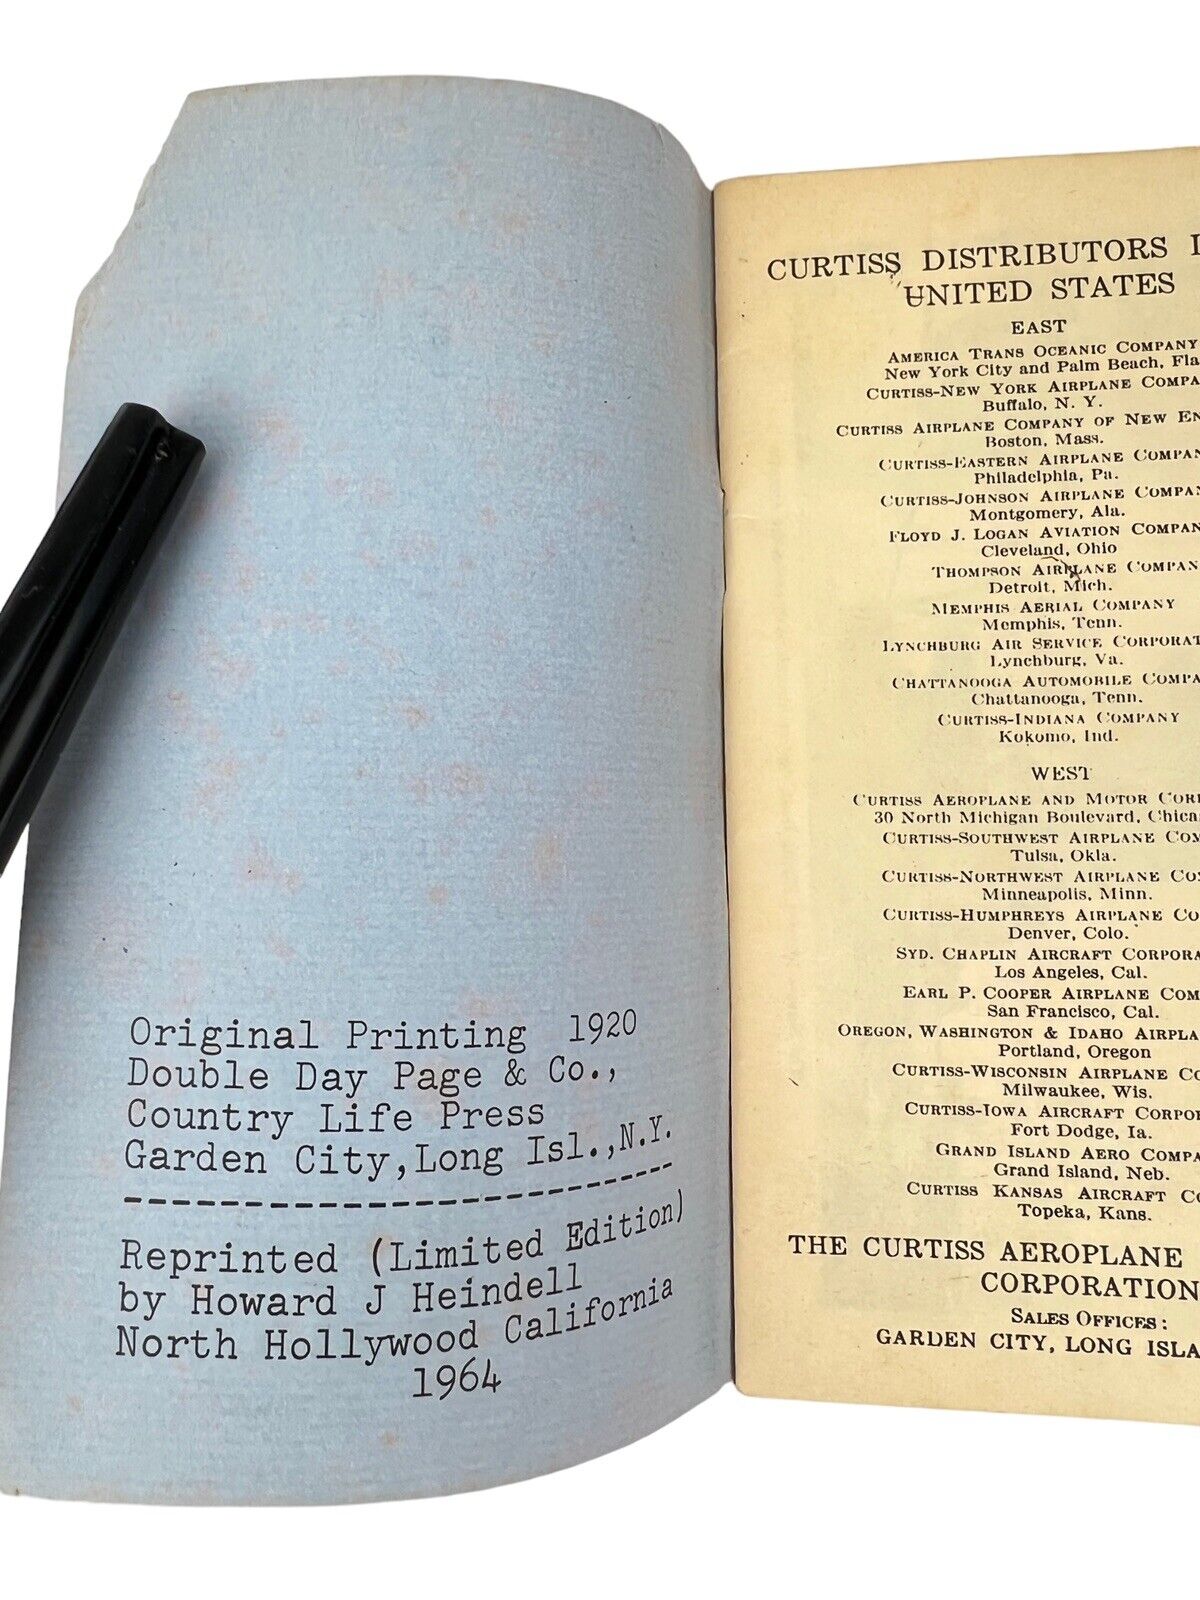 Original Printing 1920
Double Day Page & Co.,
Country Life Press
Garden City,Long Isl.,N.Y.
--------------------------------
Reprinted (Limited Edition)
by Howard J Heindell
North Hollywood California
1964
CURTISS DISTRIBUTORS
UNITED STATES
EAST
AMERICA TRANS OCEANIC COMPANY
New York City and Palm Beach, Fla
CURTISS-NEW YORK AIRPLANE COMPA
Buffalo, N. Y.
CURTISS AIRPLANE COMPANY OF NEW EN
Boston, Mass.
CURTISS-EASTERN AIRPLANE COMPAN
Philadelphia, Pa.
CURTISS-JOHNSON AIRPLANE COMPA
Montgomery, Ala.
FLOYD J. LOGAN AVIATION COMPAN
Cleveland, Ohio
THOMPSON AIRPLANE COMPAN
Detroit, Mich.
MEMPHIS AERIAL COMPANY
Memphis, Tenn.
LYNCHBURG AIR SERVICE CORPORAT
Lynchburg, Va.
CHATTANOOGA AUTOMOBILE COMPA
Chattanooga, Tenn.
CURTISS-INDIANA COMPANY
Kokomo, Ind.
WEST
CURTISS AEROPLANE AND MOTOR COR
30 North Michigan Boulevard, Chica
CURTISS-SOUTHWEST AIRPLANE COM
Tulsa, Okla.
CURTISS-NORTHWEST AIRPLANE CO
Minneapolis, Minn.
CURTISS-HUMPHREYS AIRPLANE CO
Denver, Colo.
SYD. CHAPLIN AIRCRAFT CORPORA
Los Angeles, Cal.
EARL P. COOPER AIRPLANE COM
San Francisco, Cal.
OREGON, WASHINGTON & IDAHO AIRPLA
Portland, Oregon
CURTISS-WISCONSIN AIRPLANE CO
Milwaukee, Wis.
CURTISS-IOWA AIRCRAFT CORPOR
Fort Dodge, Ia.
GRAND ISLAND AERO COMPA
Grand Island, Neb.
CURTISS KANSAS AIRCRAFT CO
Topeka, Kans.
THE CURTISS AEROPLANE
CORPORATION
SALES OFFICES:
GARDEN CITY, LONG ISLA